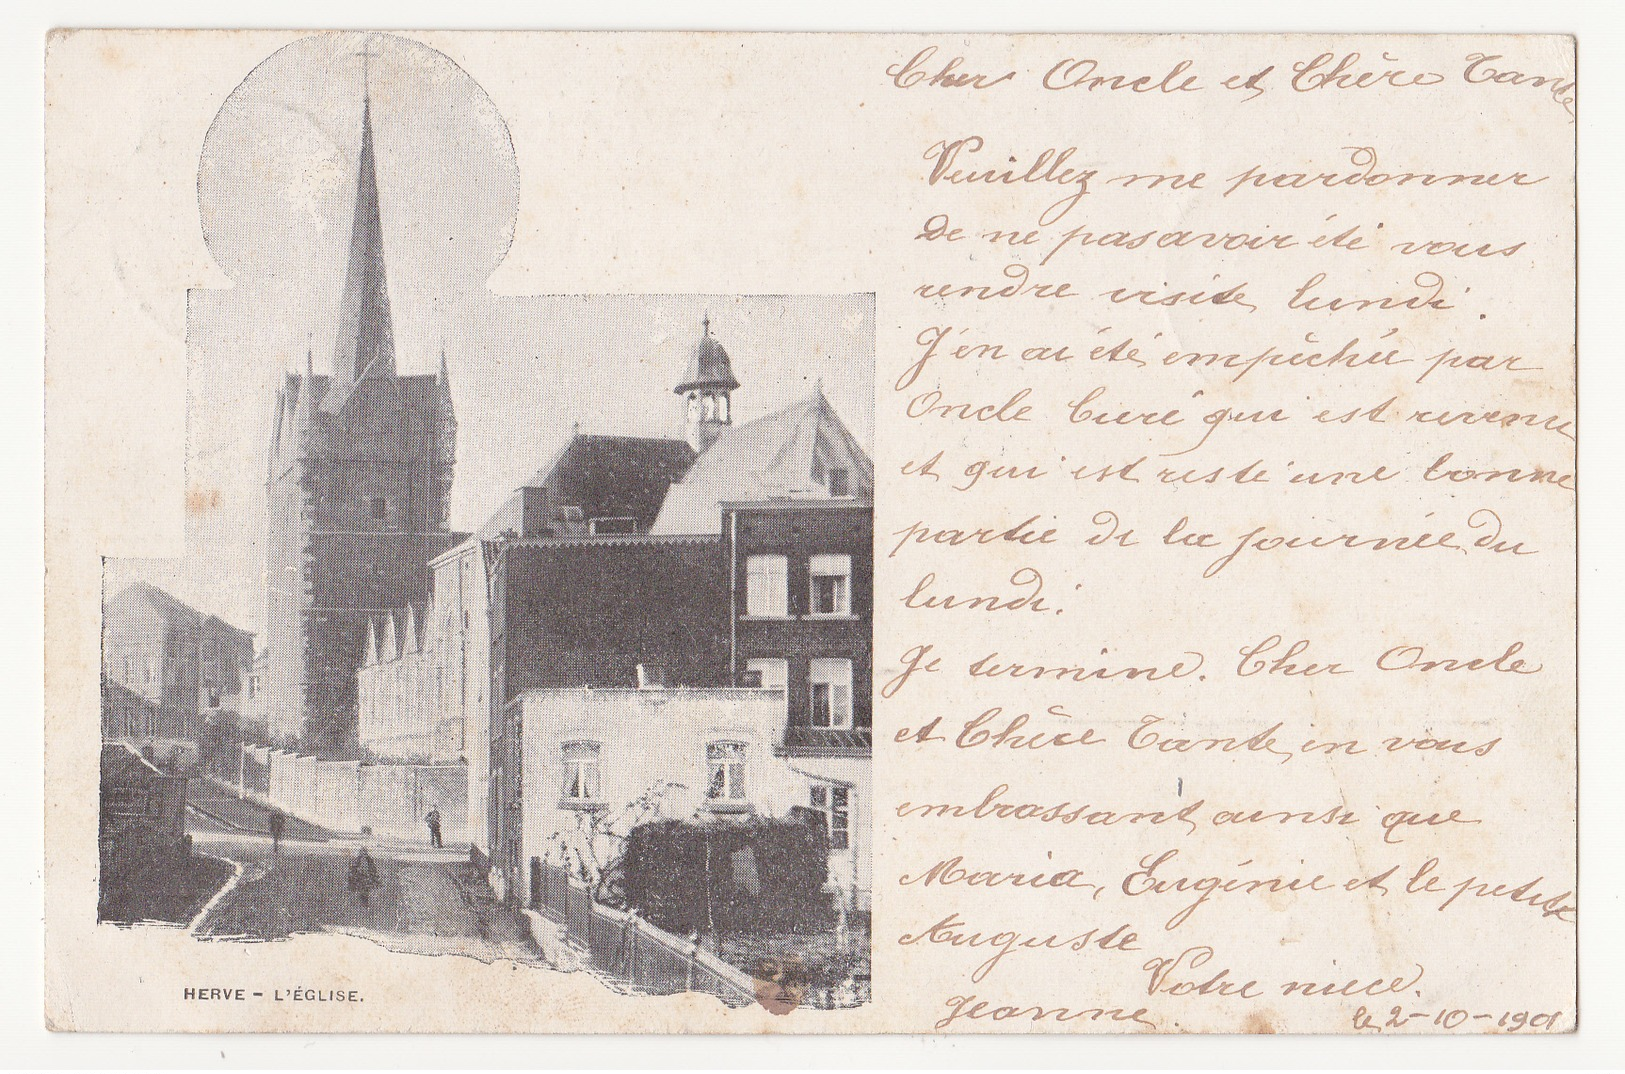 Cher Oncle et Chère Tante
Veuillez me pardonner
de ne pas avoir été vous
rendre visite lundi.
J'en ai été empêchée par
Oncle Curé qui est revenu
et qui est resté une bonne
partie de la journée du
lundi.
Je termine. Cher Oncle
et Chère Tante, en vous
embrassant ainsi que
Maria, Eugénie et le petit
Auguste
Votre niece.
Jeanne.
le 2-10-1901
HERVE - L'ÉGLISE.